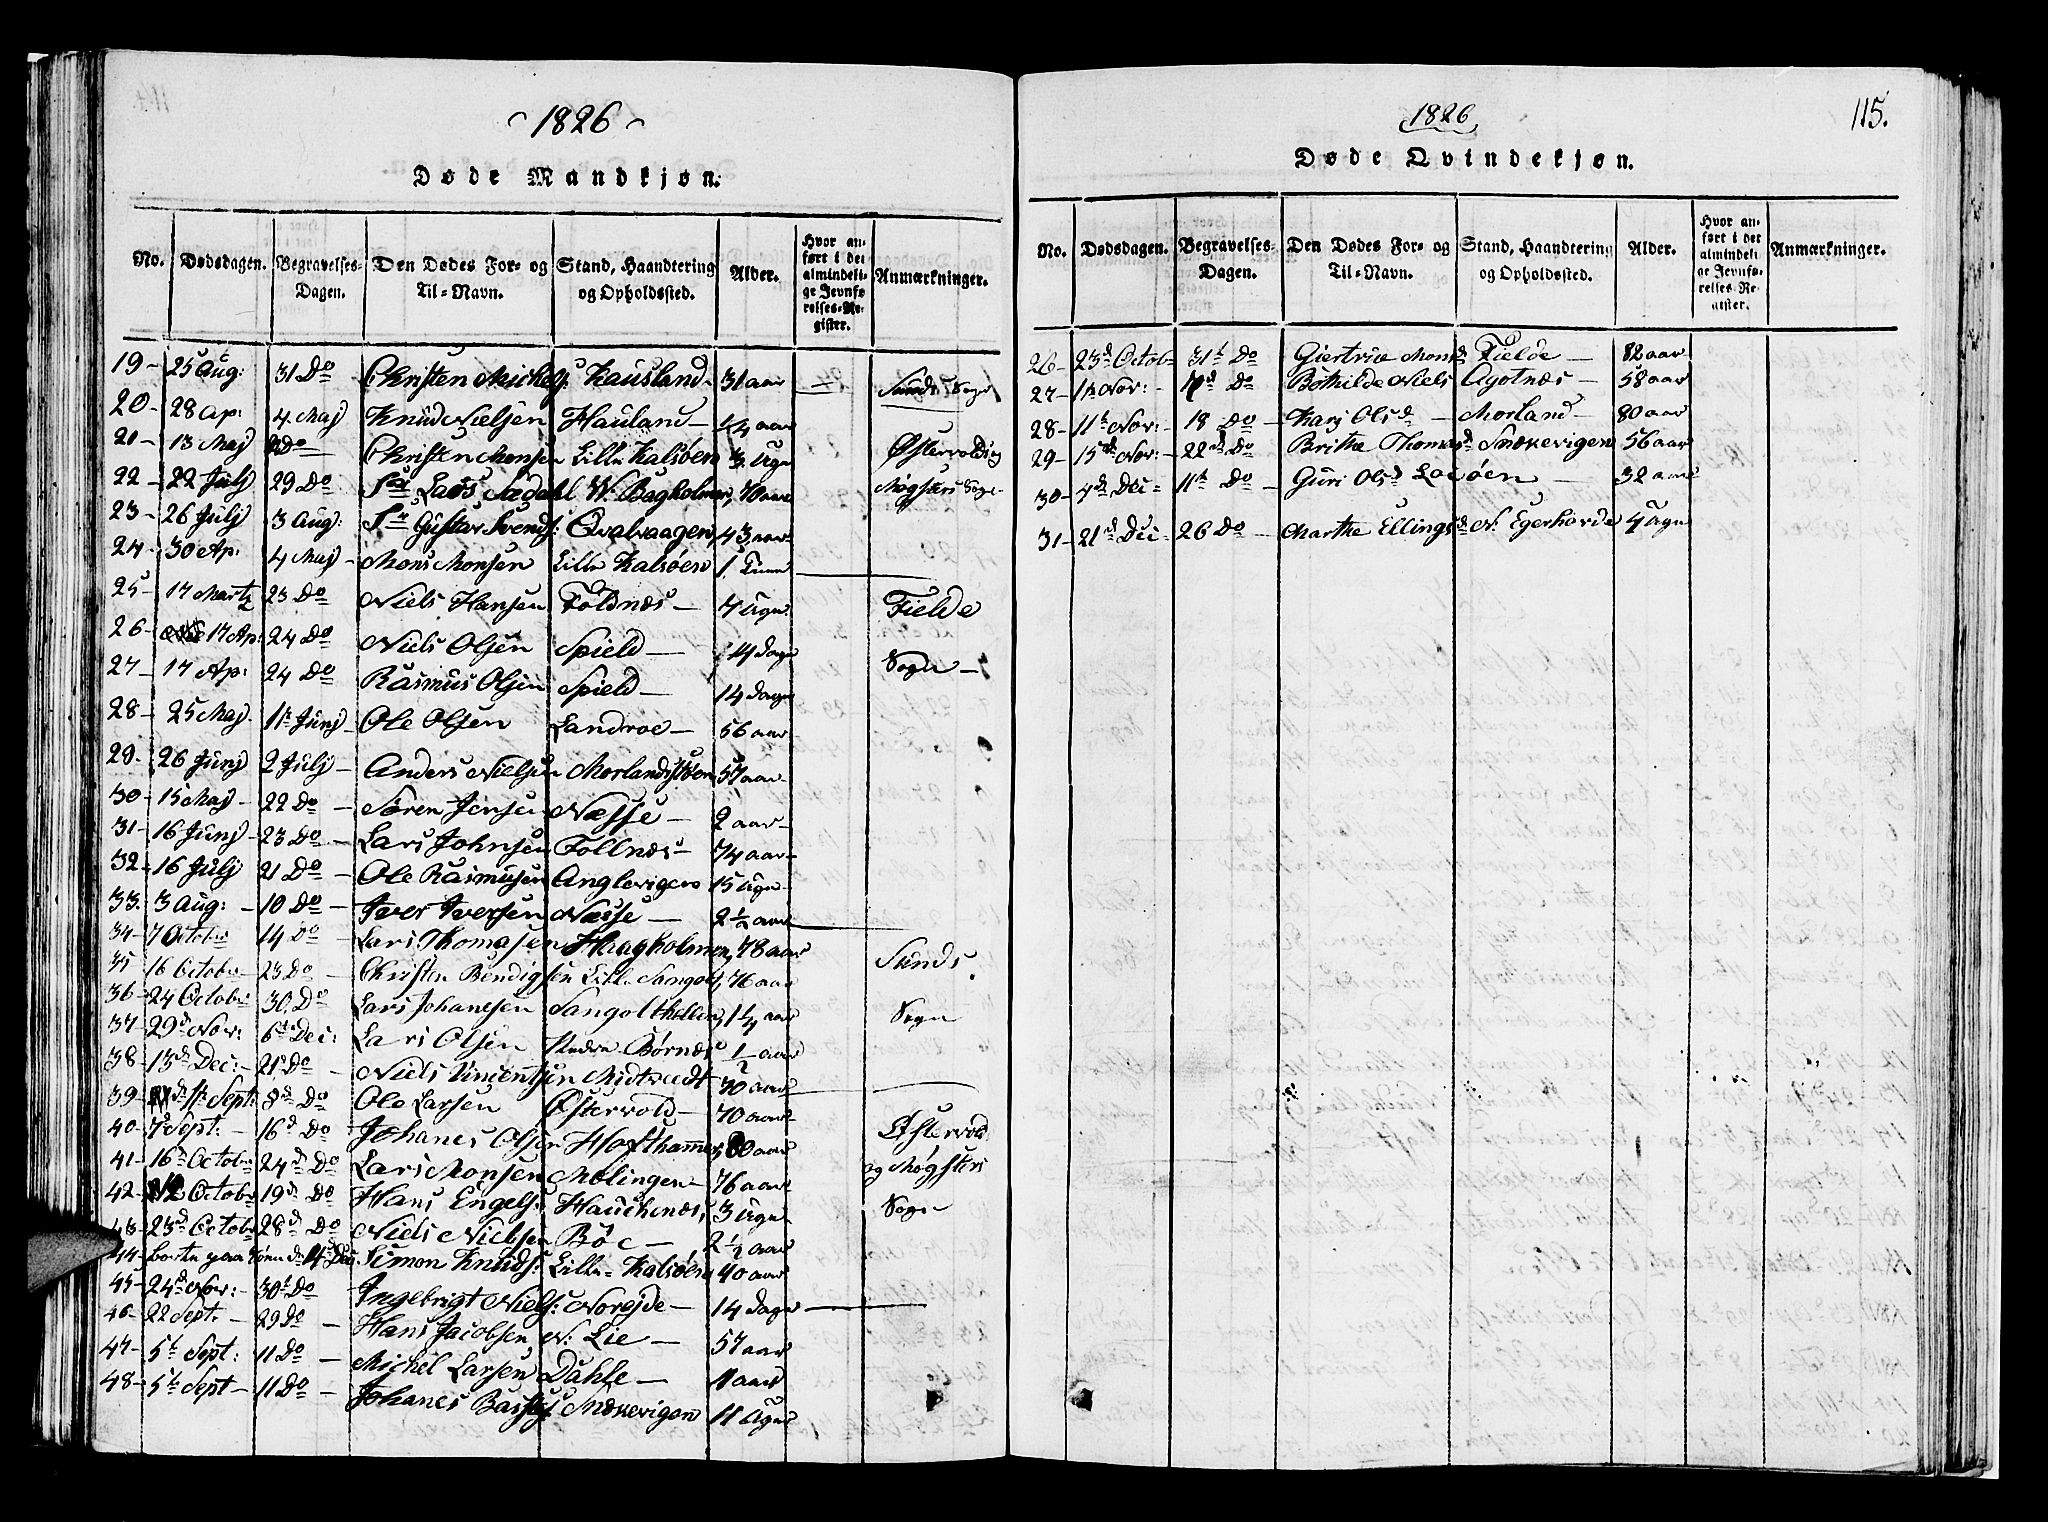 1826
Døde Mandkjøn.
No. Dødsdagen. Begravelses-Dagen. Den Dødes For- og Til-Navn. Stand, Haandtering og Opholdssted. Alder. Hvor anført i det almindelige Jevnførelses-Register. Anmærkninger.
19 - 25 Aug: 31 Do Christen Michels: Kausland 31 aar — Sunds Sogn
20 - 28 Ap: 4 Maj Knud Nielsen Hauland 1/4 aar
21 - 13 Maj Do Christen Monsen Lille Kalsøen 3 Ugr Østervold og
22 - 22 Julj 29 Do Sr Laos W. Bagholmen, 70 aar Møgsters Sogn
23 - 26 Julj 3 Aug: Sr Gustav Svends: Qvalvaagen, 43 aar
24 - 30 Ap: 4 Maj Mons Monsen Lille Kalsøen 1 Time
25 - 17 Martz 23 Do Niels Hansen Foldnæs 4 Ugr Fielde
26 - 17 Ap: 24 Do Niels Olsen Spield 14 dage
27 - 17 Ap: 24 Do Rasmus Olsen Spield 14 dage Sogn
28 - 25 Maj 11t Junj Ole Olsen Landroe 56 aar
29 - 26 Junj 2 Julj Anders Nielsen Morlandstøen 57 aar
30 - 15 Maj 22 Do Søren Jensen Næsse 2 aar
31 - 16 Junj 23 Do Lars Johnsen Follnæs 74 aar
32 - 16 Julj 21 Do Ole Rasmusen Anglevigen 15 Ugr
33 - 3 Aug: 10 Do Iver Iversen Næsse 2 1/2 aar
34 - 7 Octobr 14 Do Lars Thomasen Haagholmen, 78 aar
35 16 Octobr 23 Do Christen Bendigsen Lille Sangolt, 76 aar Sunds
36 - 24 Octobr 30 Do Lars Johanesen Sangolthellen, 1 1/4 aar
37 - 29d Nov: 6te Dec: Lars Olsen Nedre Børnæs 1/2 aar Sogn
38 - 13d Dec: 21 Do Niels Vincentsen Midtvedt 30 aar
39 - 1t Sept: 8d Do Ole Larsen Østervold 70 aar
40 - 7d Sept: 16d Do Johanes Olsen Hofthammer, 60 aar Østervold
41 - 16d Octobr 24d Do Lars Monsen Mølingen 76 aar og Møgsters
42 - 12 Octobr 19d Do Hans Engels: Hauchenæs 3 Ugr Sogn
43 - 23d Octobr 28d Do Niels Nielsen Bøe 2 1/2 aar
44 - borte paa Søen d 4d Dec: Simon Knuds: Lille Kalsøen 40 aar
45 - 24d Nov: 30t Do Ingebrigt Niels: Norejde 14 dage
46 - 22 Sept: 29 Do Hans Jacobsen N: Lie 57 aar
47 - 5t Sept: 11 Do Michel Larsen Dahle 1 aar
48 - 5te Sept 11 Do Johanes Snekevigen 11 Ugr
1826
115.
Døde Qvindekjøn.
No. Dødsdagen. Begravelses-Dagen. Den Dødes For- og Til-Navn. Stand, Haandtering og Opholdssted. Alder. Hvor anført i det almindelige Jevnførelses-Register. Anmærkninger.
26 - 23d Octob 31t Do Giertrue Monsd Fielde 82 aar
27 - 1t Nov: 7d Do Bothilde Niels Agotnæs 58 aar
28 - 11t Nov: 18 Do Karj Olsd Morland 80 aar
29 - 15d Nov: 22d Do Brithe Thomasd Snekevigen 56 aar
30 - 4d Dec 11t Do Guri Olsd Locøen 32 aar
31 - 21d Dec 26 Do Marthe Ellingsd N: Egerhovde 4 Ugr